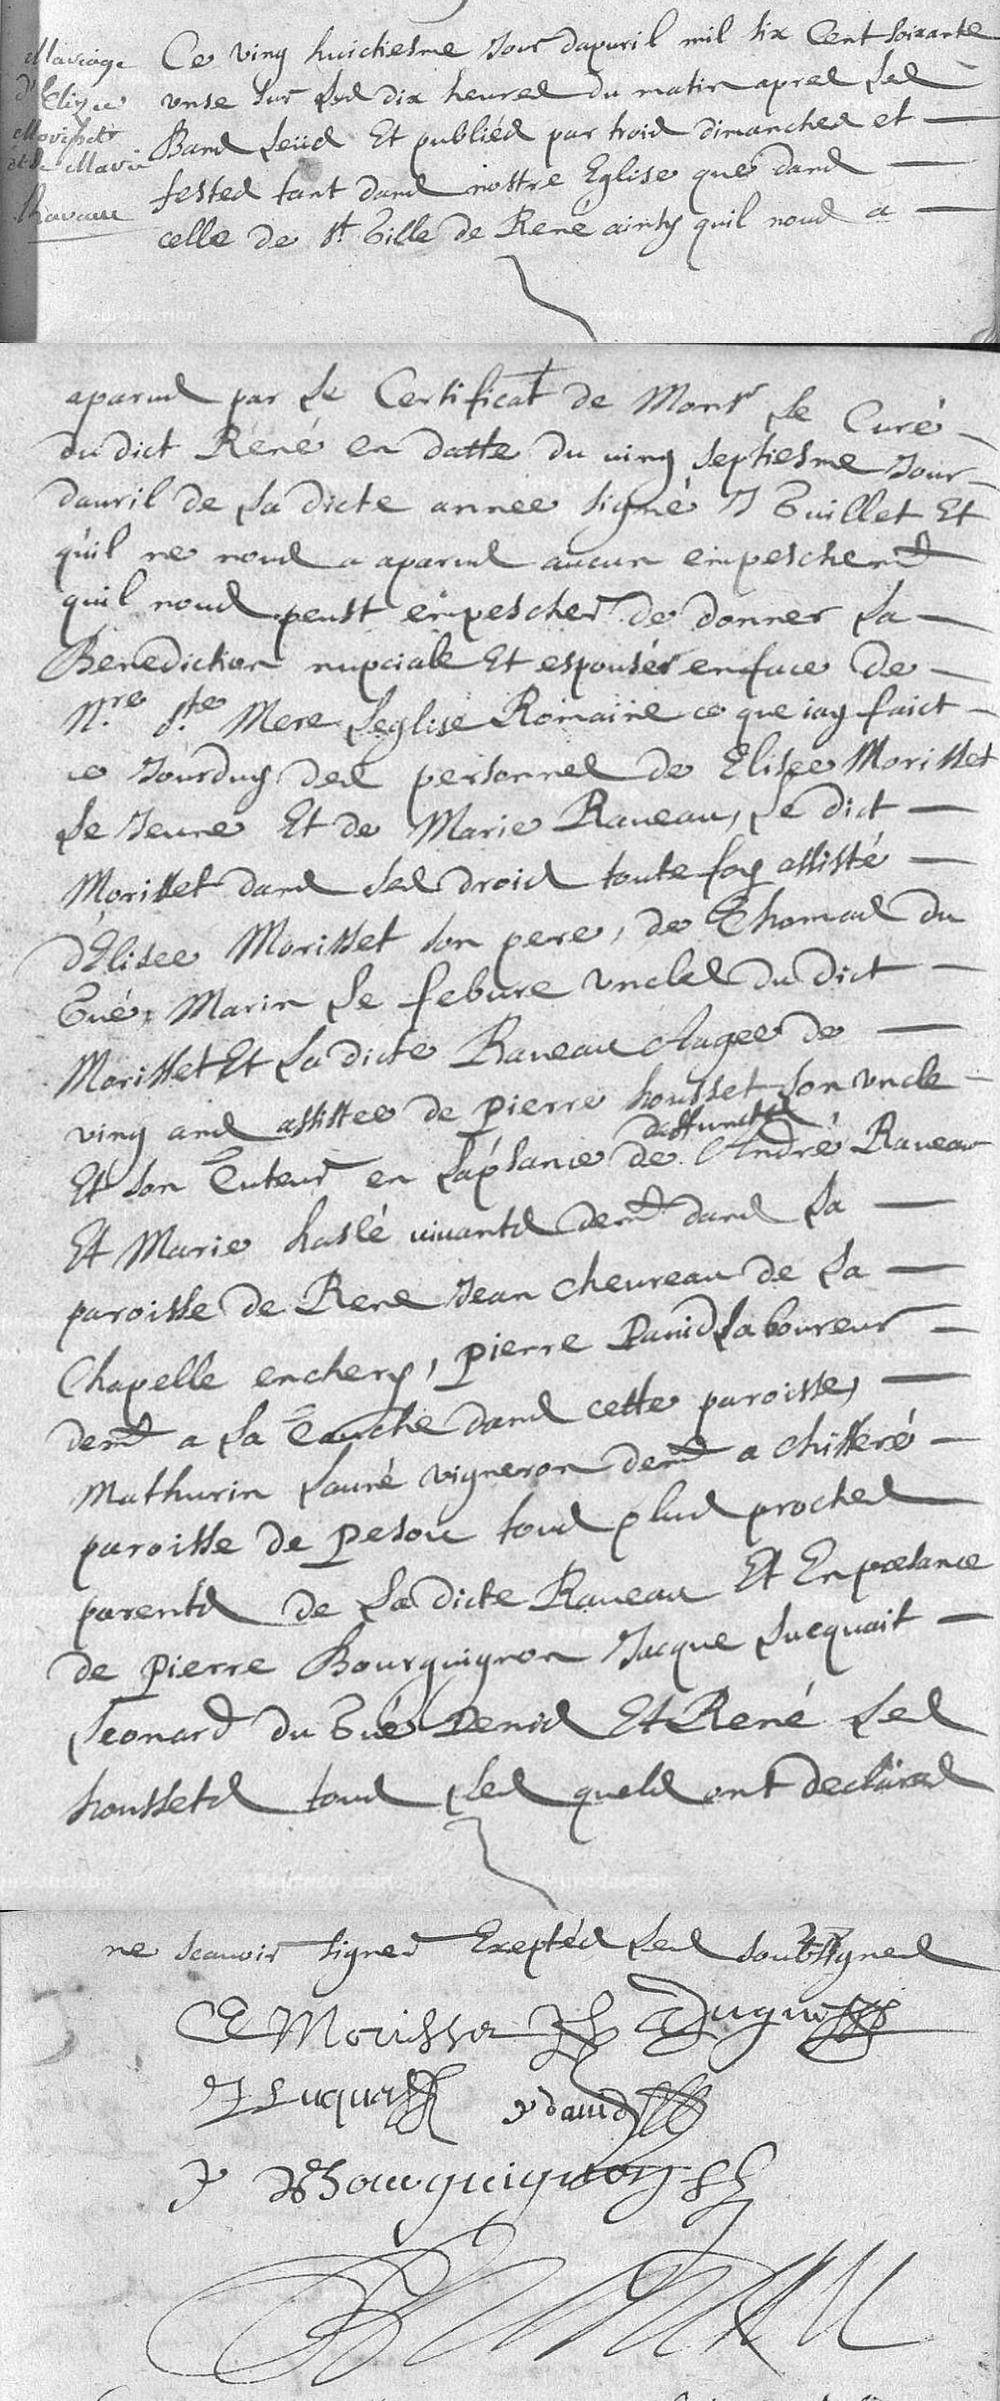 Mariage
d'Elizee
Morisset
et de Marie
Raveau
Ce ving huictiesme Jour dapuril mil six Cent soixante
unse sur les dix heures du matin apres les
Bans leüd Et publiés par trois dimanches et
festes tant dans nostre Eglise que dans
celle de st Gille de René ainsy quil nous a
aparus par Le Certificat de Monsr Le Curé
du dict René en datte du ving septiesme Jour
dauril de La dicte annee signé J Guillet Et
quil ne nous a aparus aucun empeschemt
quil nous peust empescher de donner La
Benediction nupciale Et espouser en face de
Nre ste Mere Leglise Romaine ce que iay faict
ce Jourduy des personnes de Elisee Morisset
Le Jeune Et de Marie Raueau, Le dict
Morisset dans ses drois toute foy assisté
d'Elisee Morisset son pere, de Thomas du
Gué, Marin Le febure uncles du dict
Morisset Et La dicte Raueau Aagee de
ving ans assistee de pierre housset son uncle
Et son Tuteur en Lapsance de deffuncts André Raueau
Et Marie haslé uiuants demt dans La
paroisse de Rene Jean cheureau de La
Chapelle enchery, pierre Dauid Laboureur
demt a La Touche dans cette paroisse,
Mathurin Lauré vigneron demt a chisseré
paroisse de pesou tous plus proches
parents de La dicte Raueau Et En pœsance
de pierre Bourguignon Jacque Lucquait
Leonard du Gué Denis Et René Les
houssets tous Les quels ont declares
ne scauoir signer Exeptés Les soubsignes
E Morisset T Dugué
J Luquas P dauid
P Bourguignon